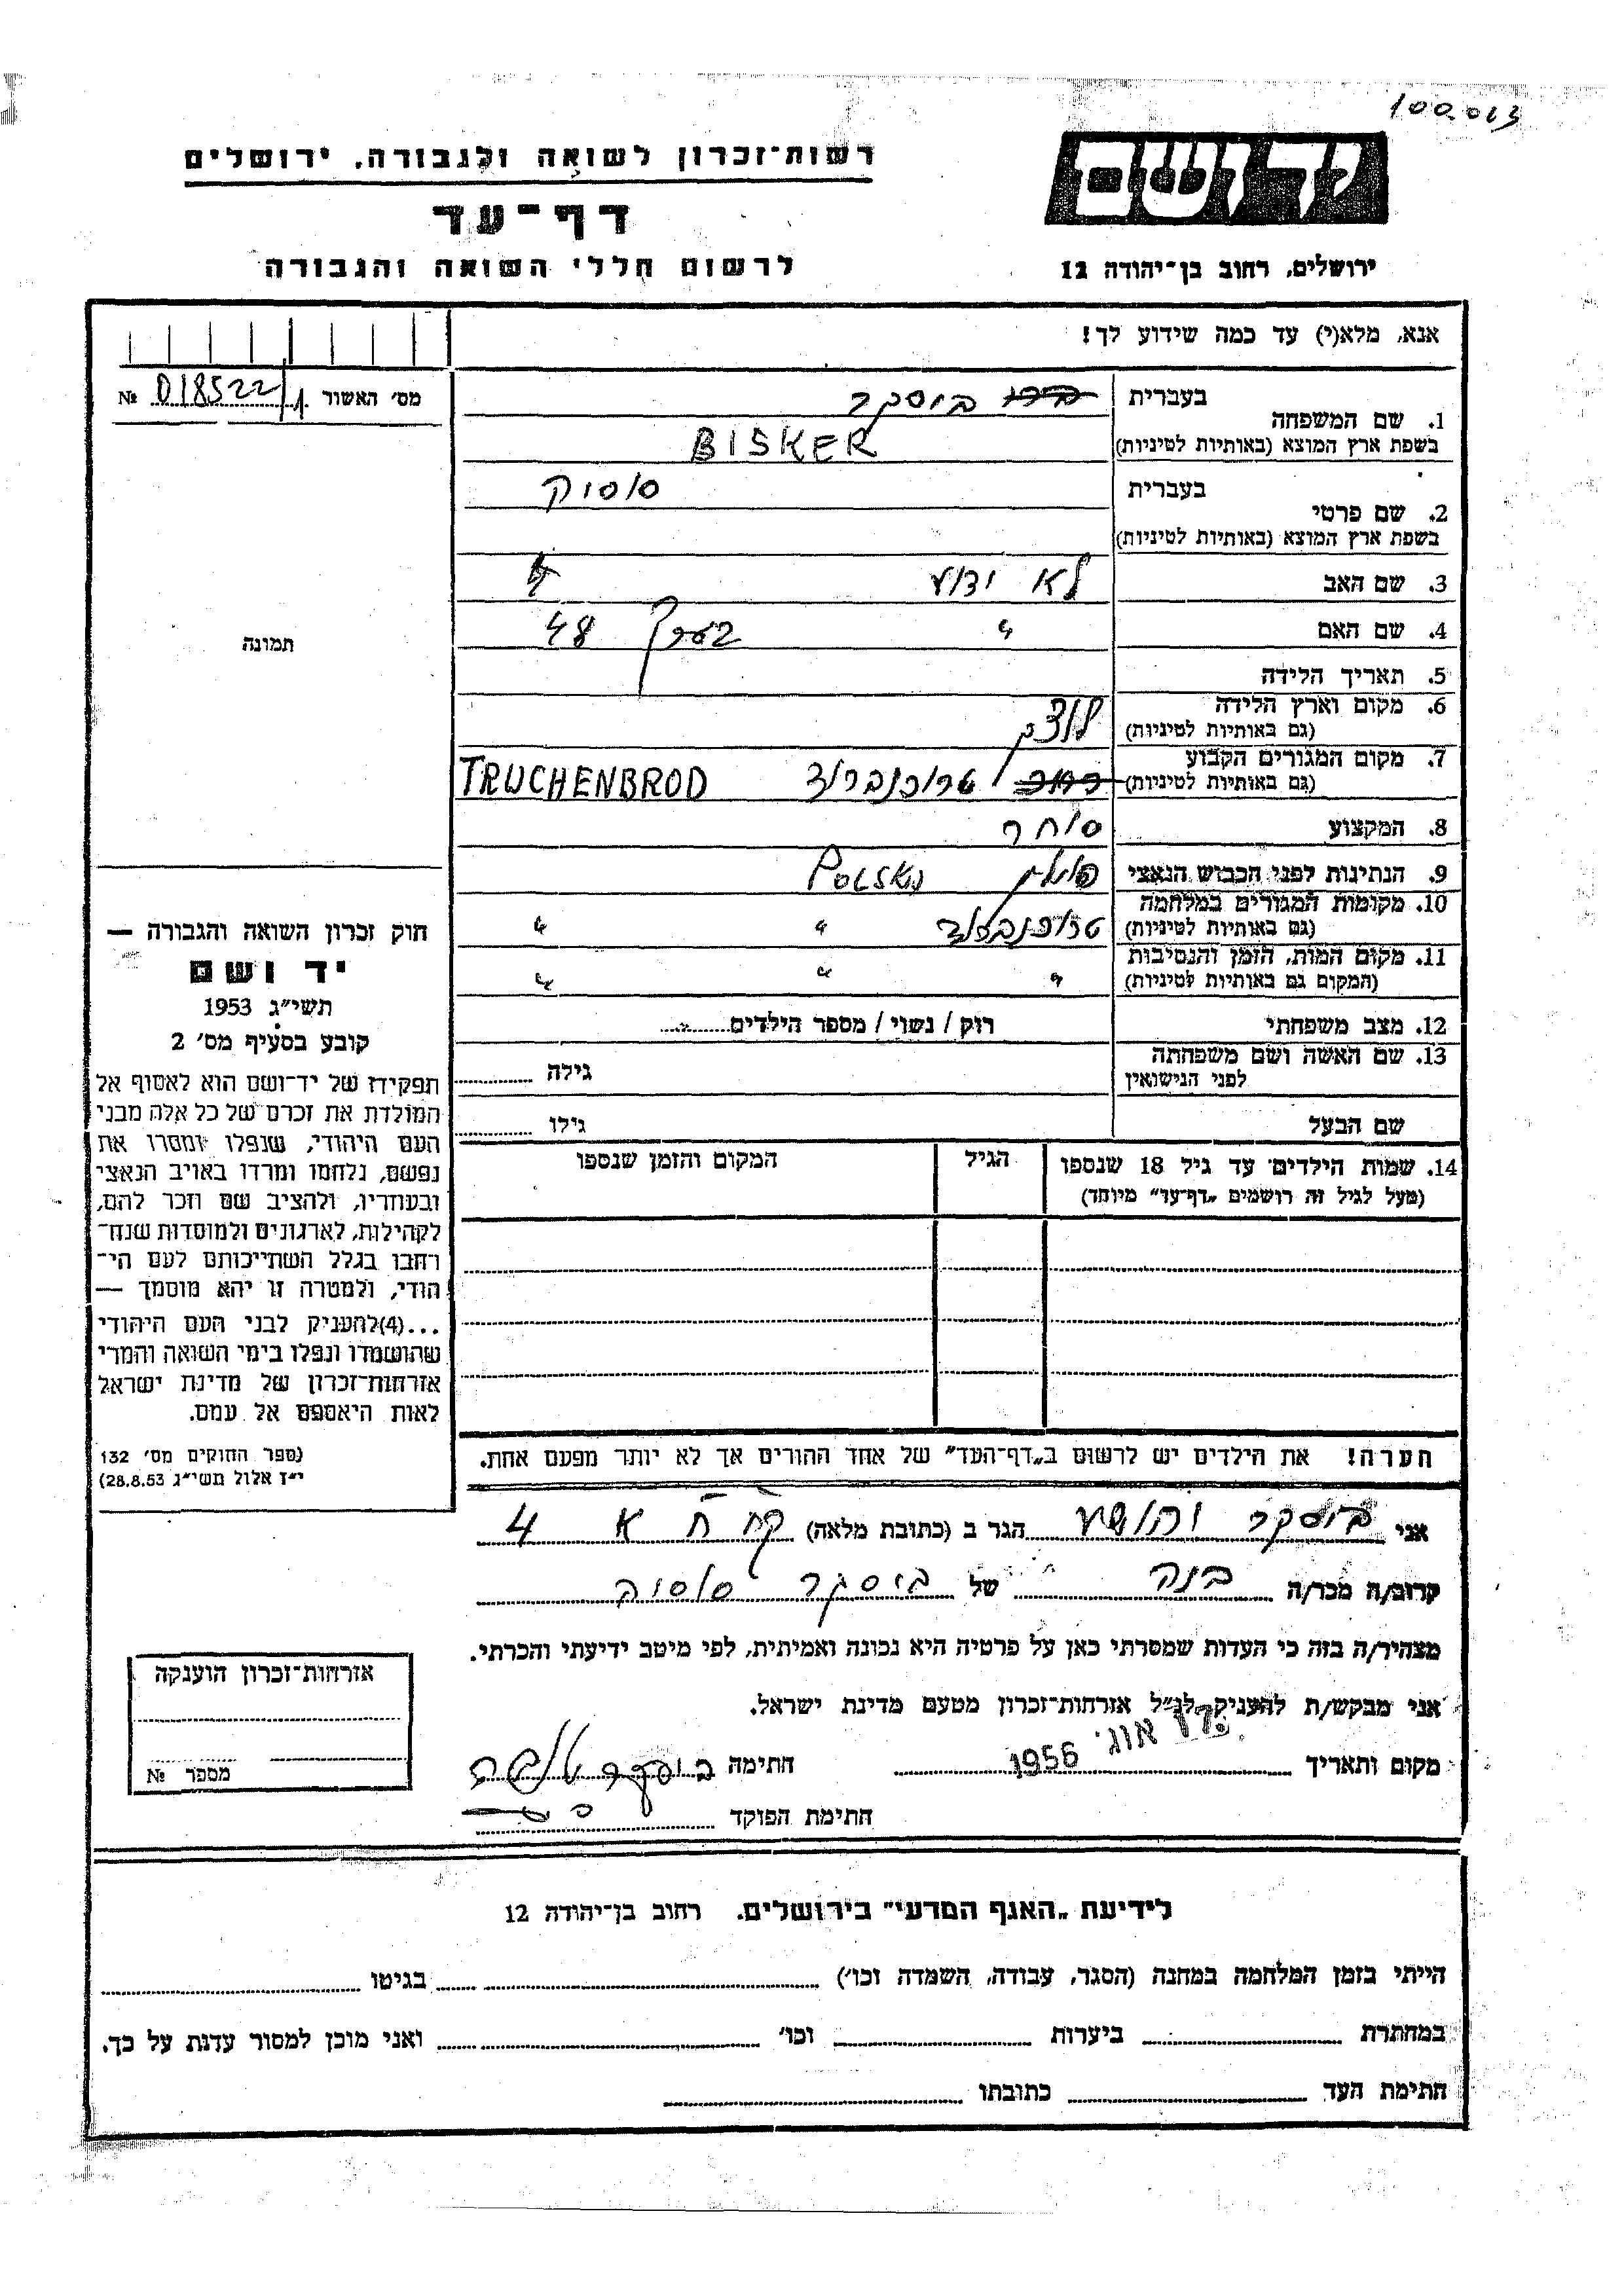 100.013
יד ושם
רשות־זכרון לשואה ולגבורה, ירושלים
דף־עד
לרשום חללי השואה והגבורה
ירושלים, רחוב בן־יהודה 12
אנא, מלא(י) עד כמה שידוע לך!
מס׳ האשור 018522/1 №
תמונה
1. שם המשפחה
בעברית ביסקר
בשפת ארץ המוצא (באותיות לטיניות) BISKER
2. שם פרטי
בעברית סוסיק
בשפת ארץ המוצא (באותיות לטיניות)
3. שם האב לא ידוע
4. שם האם " בערך 48
5. תאריך הלידה
6. מקום וארץ הלידה
(גם באותיות לטיניות)
7. מקום המגורים הקבוע
(גם באותיות לטיניות) טרוכנברוד TRUCHENBROD
8. המקצוע סוחר
9. הנתינות לפני הכבוש הנאצי פולין
10. מקומות המגורים במלחמה
(גם באותיות לטיניות) טרוכנברוד " "
11. מקום המות, הזמן והנסיבות
(המקום גם באותיות לטיניות) " " "
12. מצב משפחתי רוק / נשוי / מספר הילדים
13. שם האשה ושם משפחתה
לפני הנישואין גילה
שם הבעל גילו
14. שמות הילדים עד גיל 18 שנספו הגיל המקום והזמן שנספו
(מעל לגיל זה רושמים „דף־עד” מיוחד)
חוק זכרון השואה והגבורה —
יד ושם
תשי״ג 1953
קובע בסעיף מס׳ 2
תפקידו של יד־ושם הוא לאסוף אל
המולדת את זכרם של כל אלה מבני
העם היהודי, שנפלו ומסרו את
נפשם, נלחמו ומרדו באויב הנאצי
ובעוזריו, ולהציב שם וזכר להם,
לקהילות, לארגונים ולמוסדות שנח־
רחבו בגלל השתייכותם לעם הי־
הודי, ולמטרה זו יהא מוסמך —
...(4)להעניק לבני העם היהודי
שהושמדו ונפלו בימי השואה והמרי
אזרחות־זכרון של מדינת ישראל
לאות היאספם אל עמם.
(ספר החוקים מס׳ 132
י״ז אלול תשי״ג 28.8.53)
הערה! את הילדים יש לרשום ב„דף־העד” של אחד ההורים אך לא יותר מפעם אחת.
אני ביסקר יהושע הגר ב (כתובת מלאה) 4
קרוב/ה מכר/ה בנה של ביסקר סוסיק
מצהיר/ה בזה כי העדות שמסרתי כאן על פרטיה היא נכונה ואמיתית, לפי מיטב ידיעתי והכרתי.
אני מבקש/ת להעניק לנ״ל אזרחות־זכרון מטעם מדינת ישראל.
מקום ותאריך אוג׳ 1956 חתימה ביסקר
חתימת הפוקד
אזרחות־זכרון הוענקה
מספר №
לידיעת „האגף המדעי” בירושלים, רחוב בן־יהודה 12
הייתי בזמן המלחמה במחנה (הסגר, עבודה, השמדה וכו׳) בגיטו
במחתרת ביערות וכו׳ ואני מוכן למסור עדות על כך.
חתימת העד כתובתו